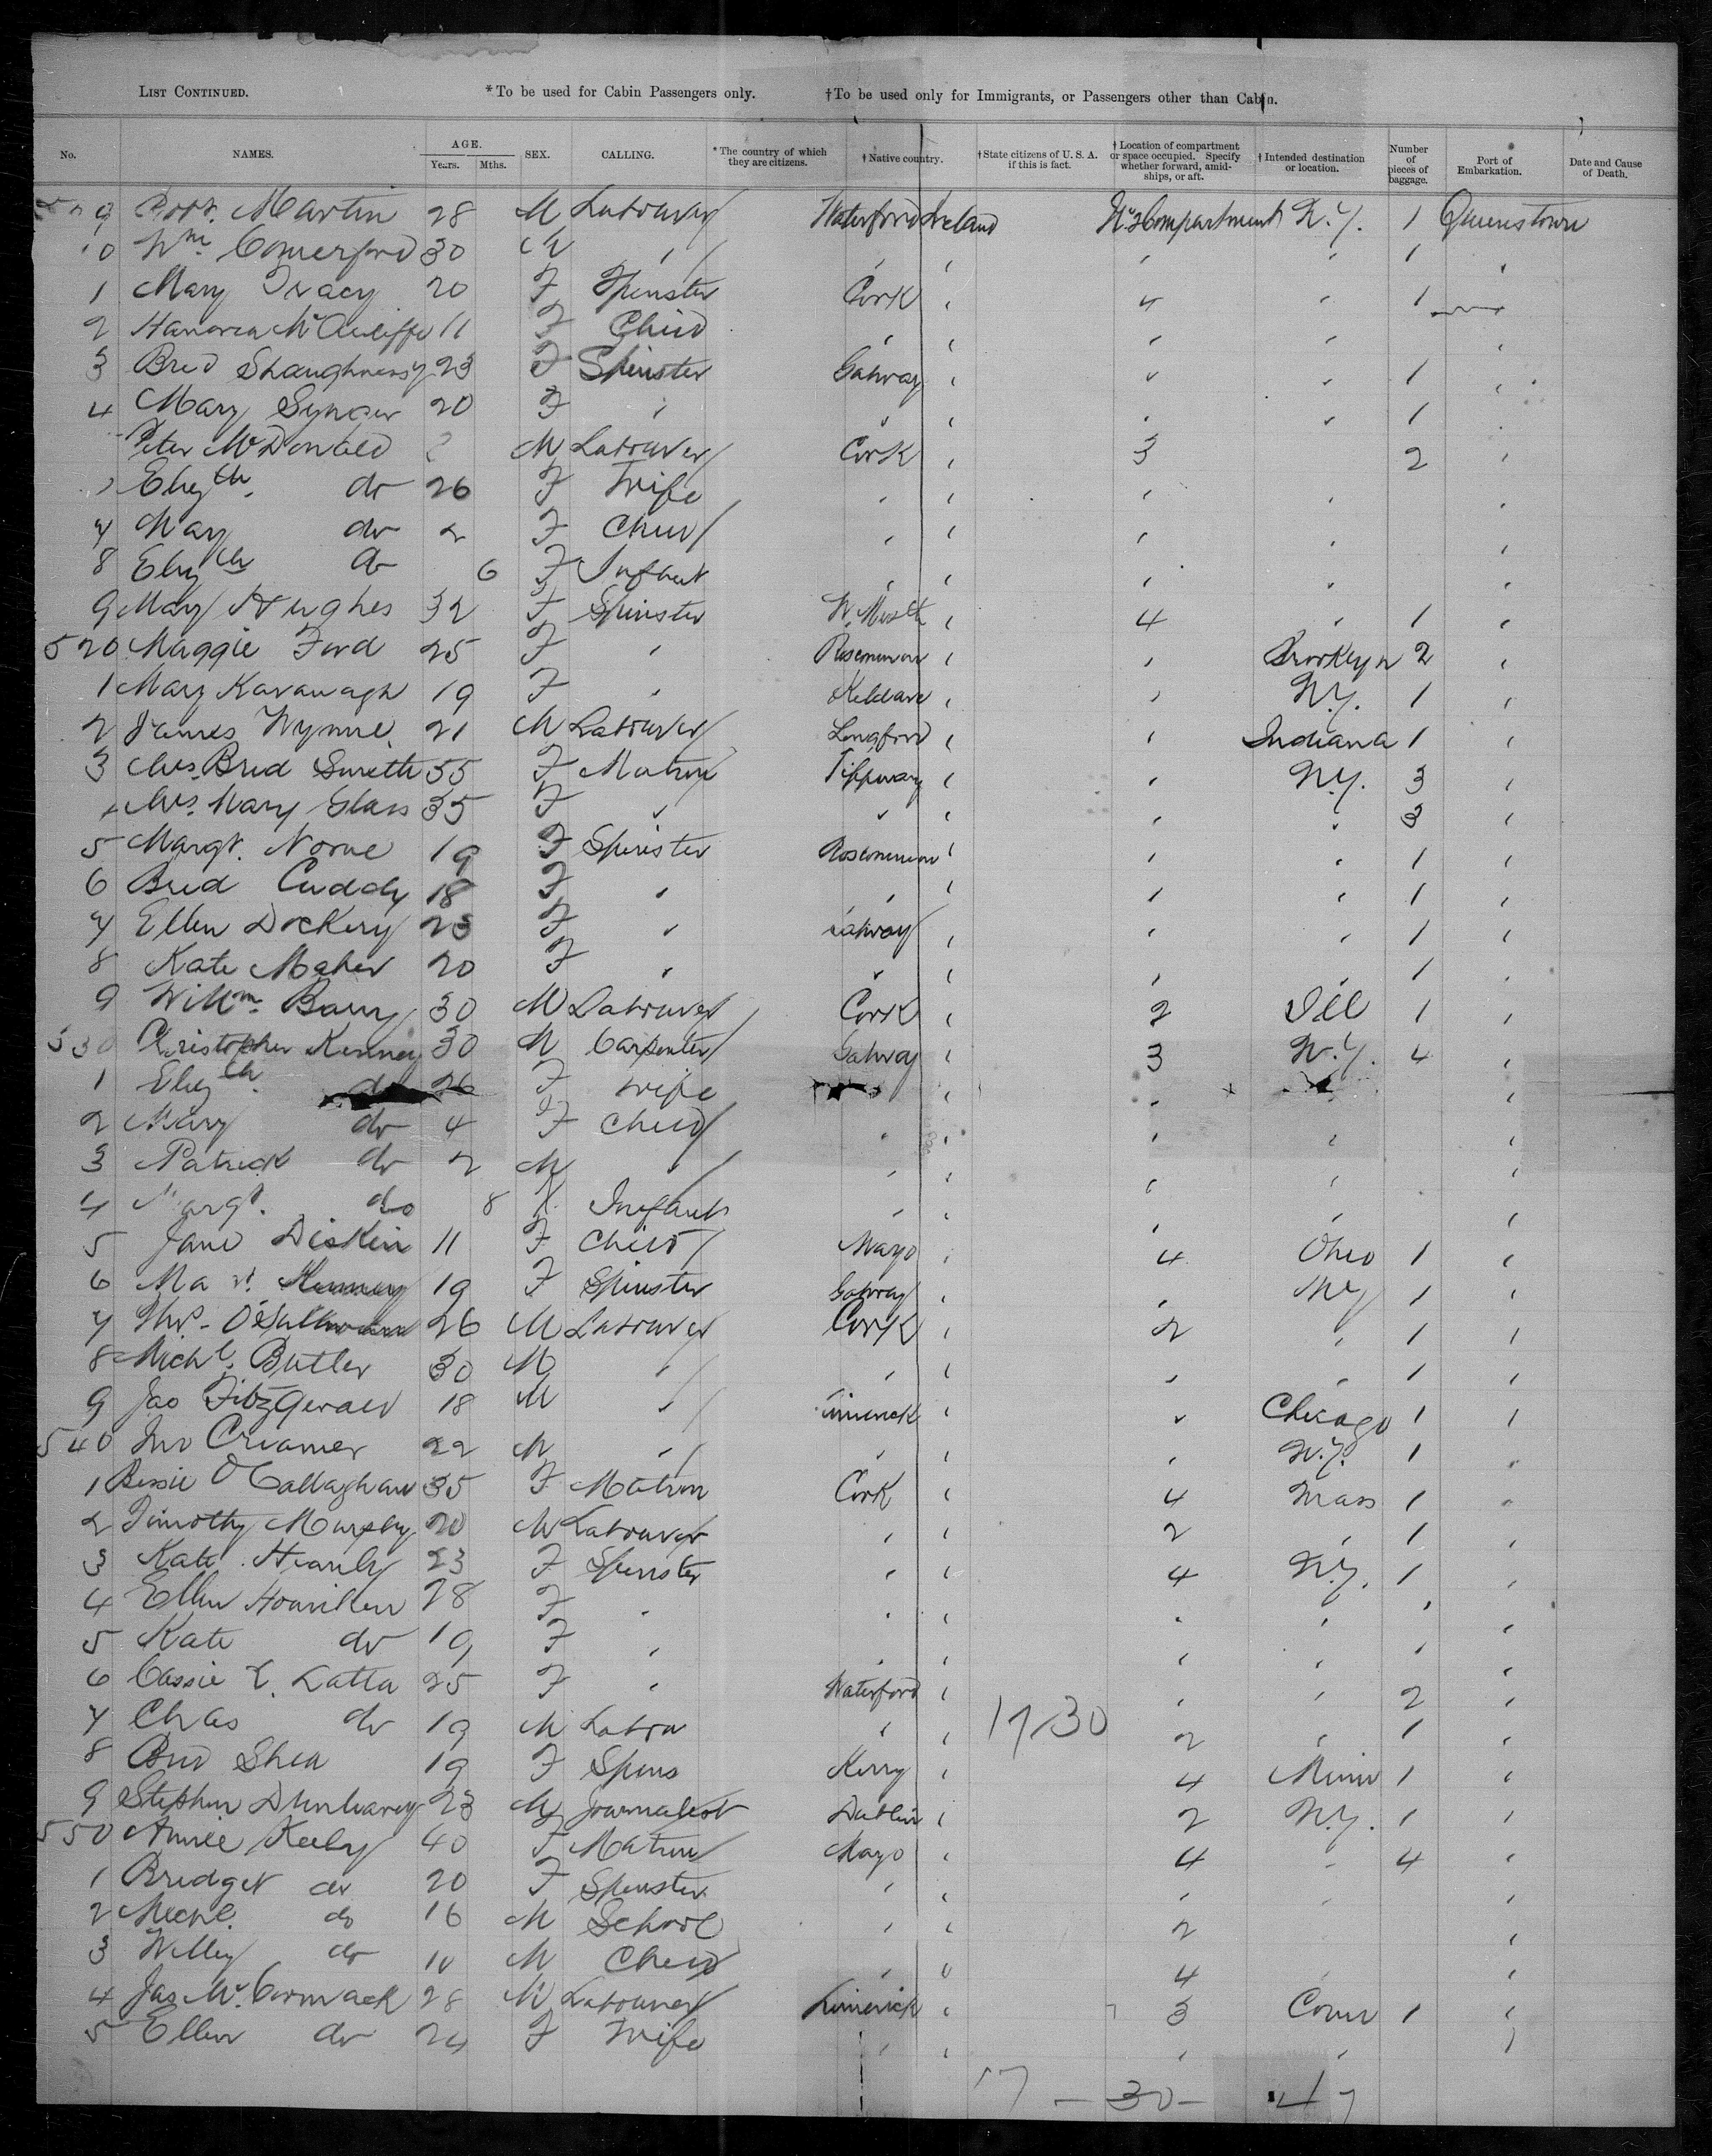 LIST CONTINUED. *To be used for Cabin Passengers only. †To be used only for Immigrants, or Passengers other than Cabin.
No. NAMES. AGE. Years. Mths. SEX. CALLING. *The country of which they are citizens. †Native country. †State citizens of U. S. A. if this is fact. †Location of compartment or space occupied. Specify whether forward, amidships, or aft. †Intended destination or location. Number of pieces of baggage. Port of Embarkation. Date and Cause of Death.
9 Martin 28 M Labourer Waterford Ireland Compartment N.Y. 1 Queenstown
0 Wm Comerford 30 M " " " " " 1 "
1 Mary Tracy 20 F Spinster Cork " 4 " 1
2 Hanorea McAuliffe 11 F Child " " " " "
3 Brid Shaughnessy 23 F Spinster Galway " " " 1 "
4 Mary 20 F " " " " " 1 "
Peter McDonald M Labourer Cork " 3 2 "
Elizth do 26 F Wife " " " " "
7 Mary do 2 F Child " " " " "
8 Elizth do 6 F Infant " " " " "
9 Mary Hughes 32 F Spinster W. Meath " 4 " 1 "
520 Maggie Ford 25 F " Roscommon " " Brooklyn 2 "
1 Mary Kavanagh 19 F " Kildare " " N.Y. 1 "
2 James Wynne 21 M Labourer Longford " " Indiana 1 "
3 Mrs. Brid 55 F Matron Tipperary " " N.Y. 3 "
4 Mrs. Mary Glass 35 F " " " " " 3 "
5 Margt. 19 F Spinster Roscommon " " " 1 "
6 Brid Cuddy 18 F " " " " " 1 "
7 Ellen Dockery 23 F " Galway " " " 1 "
8 Kate Maher 20 F " " " " " 1 "
9 Willm. Barry 30 M Labourer Cork " 2 Ill 1 "
530 Christopher Kenney 30 M Carpenter Galway " 3 N.Y. 4 "
1 Elizth. do 26 F Wife " " "
2 Mary do 4 F Child " " " " "
3 Patrick do 2 M " " " " " "
4 Margt. do 8 Infant " " " " "
5 Jane Diskin 11 F Child Mayo " 4 Ohio 1 "
6 19 F Spinster Galway " " NY 1 "
7 26 M Labourer Cork " 2 " 1 "
8 Michl. Butler 30 M " " " " " 1 "
9 Jas FitzGerald 18 M " Limerick " " Chicago 1 "
540 Jno Creamer 22 M " " " " N.Y. 1 "
1 Bessie O'Callaghan 35 F Matron Cork " 4 Mass 1 "
2 Timothy Murphy 20 M Labourer " " 2 " 1 "
3 Kate 23 F Spinster " " 4 N.Y. 1 "
4 Ellen 28 F " " " " " " "
5 Kate do 19 F " " " " " " "
6 Cassie E. Latta 25 F " Waterford " " " 2 "
7 Chas do 19 M " " 17/30 2 " 1 "
8 Brid Shea 19 F Spins Kerry " 4 Minn 1 "
9 Stephen Dunleavey 23 M Journalist Dublin " 2 N.Y. 1 "
550 Annie 40 F Matron Mayo " 4 " 4 "
1 Bridget do 20 F Spinster " " " " "
2 Michl. do 16 M School " " 2 "
3 Willey do 10 M Child " " 4 " "
4 Jas McCormack 28 M Labourer Limerick " 3 Conn 1 "
5 Ellen do 24 F Wife " " " " "
17 - 30 - 47